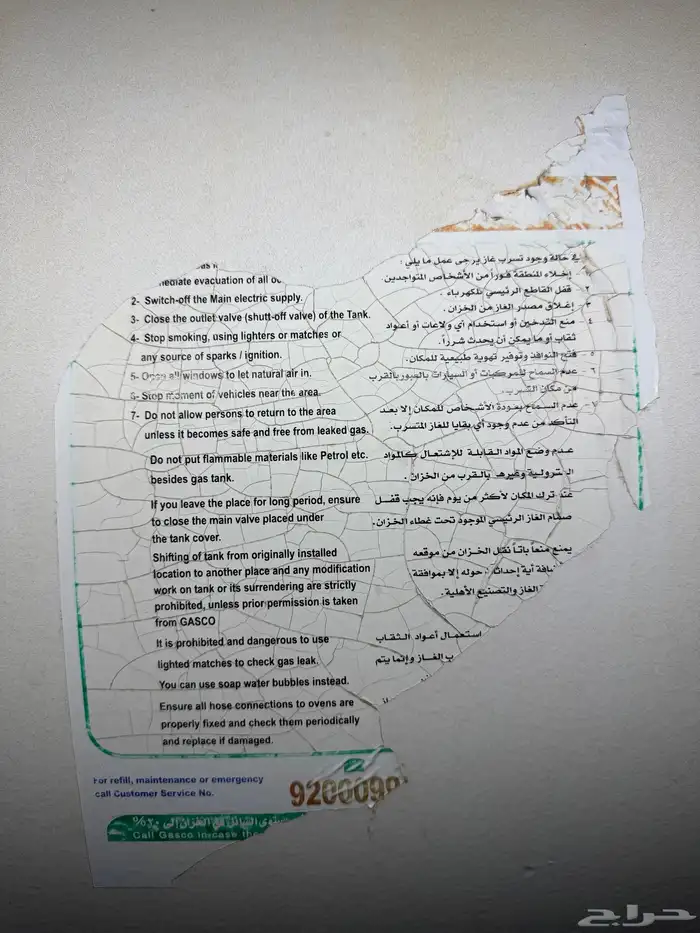 mediate evacuation of all
2- Switch-off the Main electric supply.
3- Close the outlet valve (shutt-off valve) of the Tank.
4- Stop smoking, using lighters or matches or
any source of sparks / ignition.
5- Open all windows to let natural air in.
6- Stop moment of vehicles near the area.
7- Do not allow persons to return to the area
unless it becomes safe and free from leaked gas.
Do not put flammable materials like Petrol etc.
besides gas tank.
If you leave the place for long period, ensure
to close the main valve placed under
the tank cover.
Shifting of tank from originally installed
location to another place and any modification
work on tank or its surrendering are strictly
prohibited, unless prior permission is taken
from GASCO
It is prohibited and dangerous to use
lighted matches to check gas leak.
You can use soap water bubbles instead.
Ensure all hose connections to ovens are
properly fixed and check them periodically
and replace if damaged.
في حالة وجود تسرب غاز يرجى عمل ما يلي :
١- إخلاء المنطقة فوراً من الأشخاص المتواجدين
٢ قفل القاطع الرئيسي للكهرباء .
٣- إغلاق مصدر الغاز من الخزان .
٤- منع التدخين أو استخدام أي ولاعات أو أعواد
ثقاب أو ما يمكن أن يحدث شرراً.
٥ فتح النوافذ وتوفير تهوية طبيعية للمكان.
٦- عدم السماح للمركبات أو السيارات بالمرور بالقرب
من مكان التسرب.
٧- عدم السماح بعودة الأشخاص للمكان إلا بعد
التأكد من عدم وجود أي بقايا للغاز المتسرب.
عدم وضع المواد القابلة للإشتعال كالمواد
البترولية وغيرها بالقرب من الخزان .
عند ترك المكان لأكثر من يوم فإنه يجب قفل
صمام الغاز الرئيسي الموجود تحت غطاء الخزان.
يمنع منعاً باتاً نقل الخزان من موقعه
أية إحداث حوله إلا بموافقة
الغاز والتصنيع الأهلية.
استعمال أعواد الثقاب
ب الغاز وإنما يتم
For refill, maintenance or emergency
call Customer Service No.
9200099
السائل في الخزان إلى ٢٠%
Call Gasco incase the
حراج